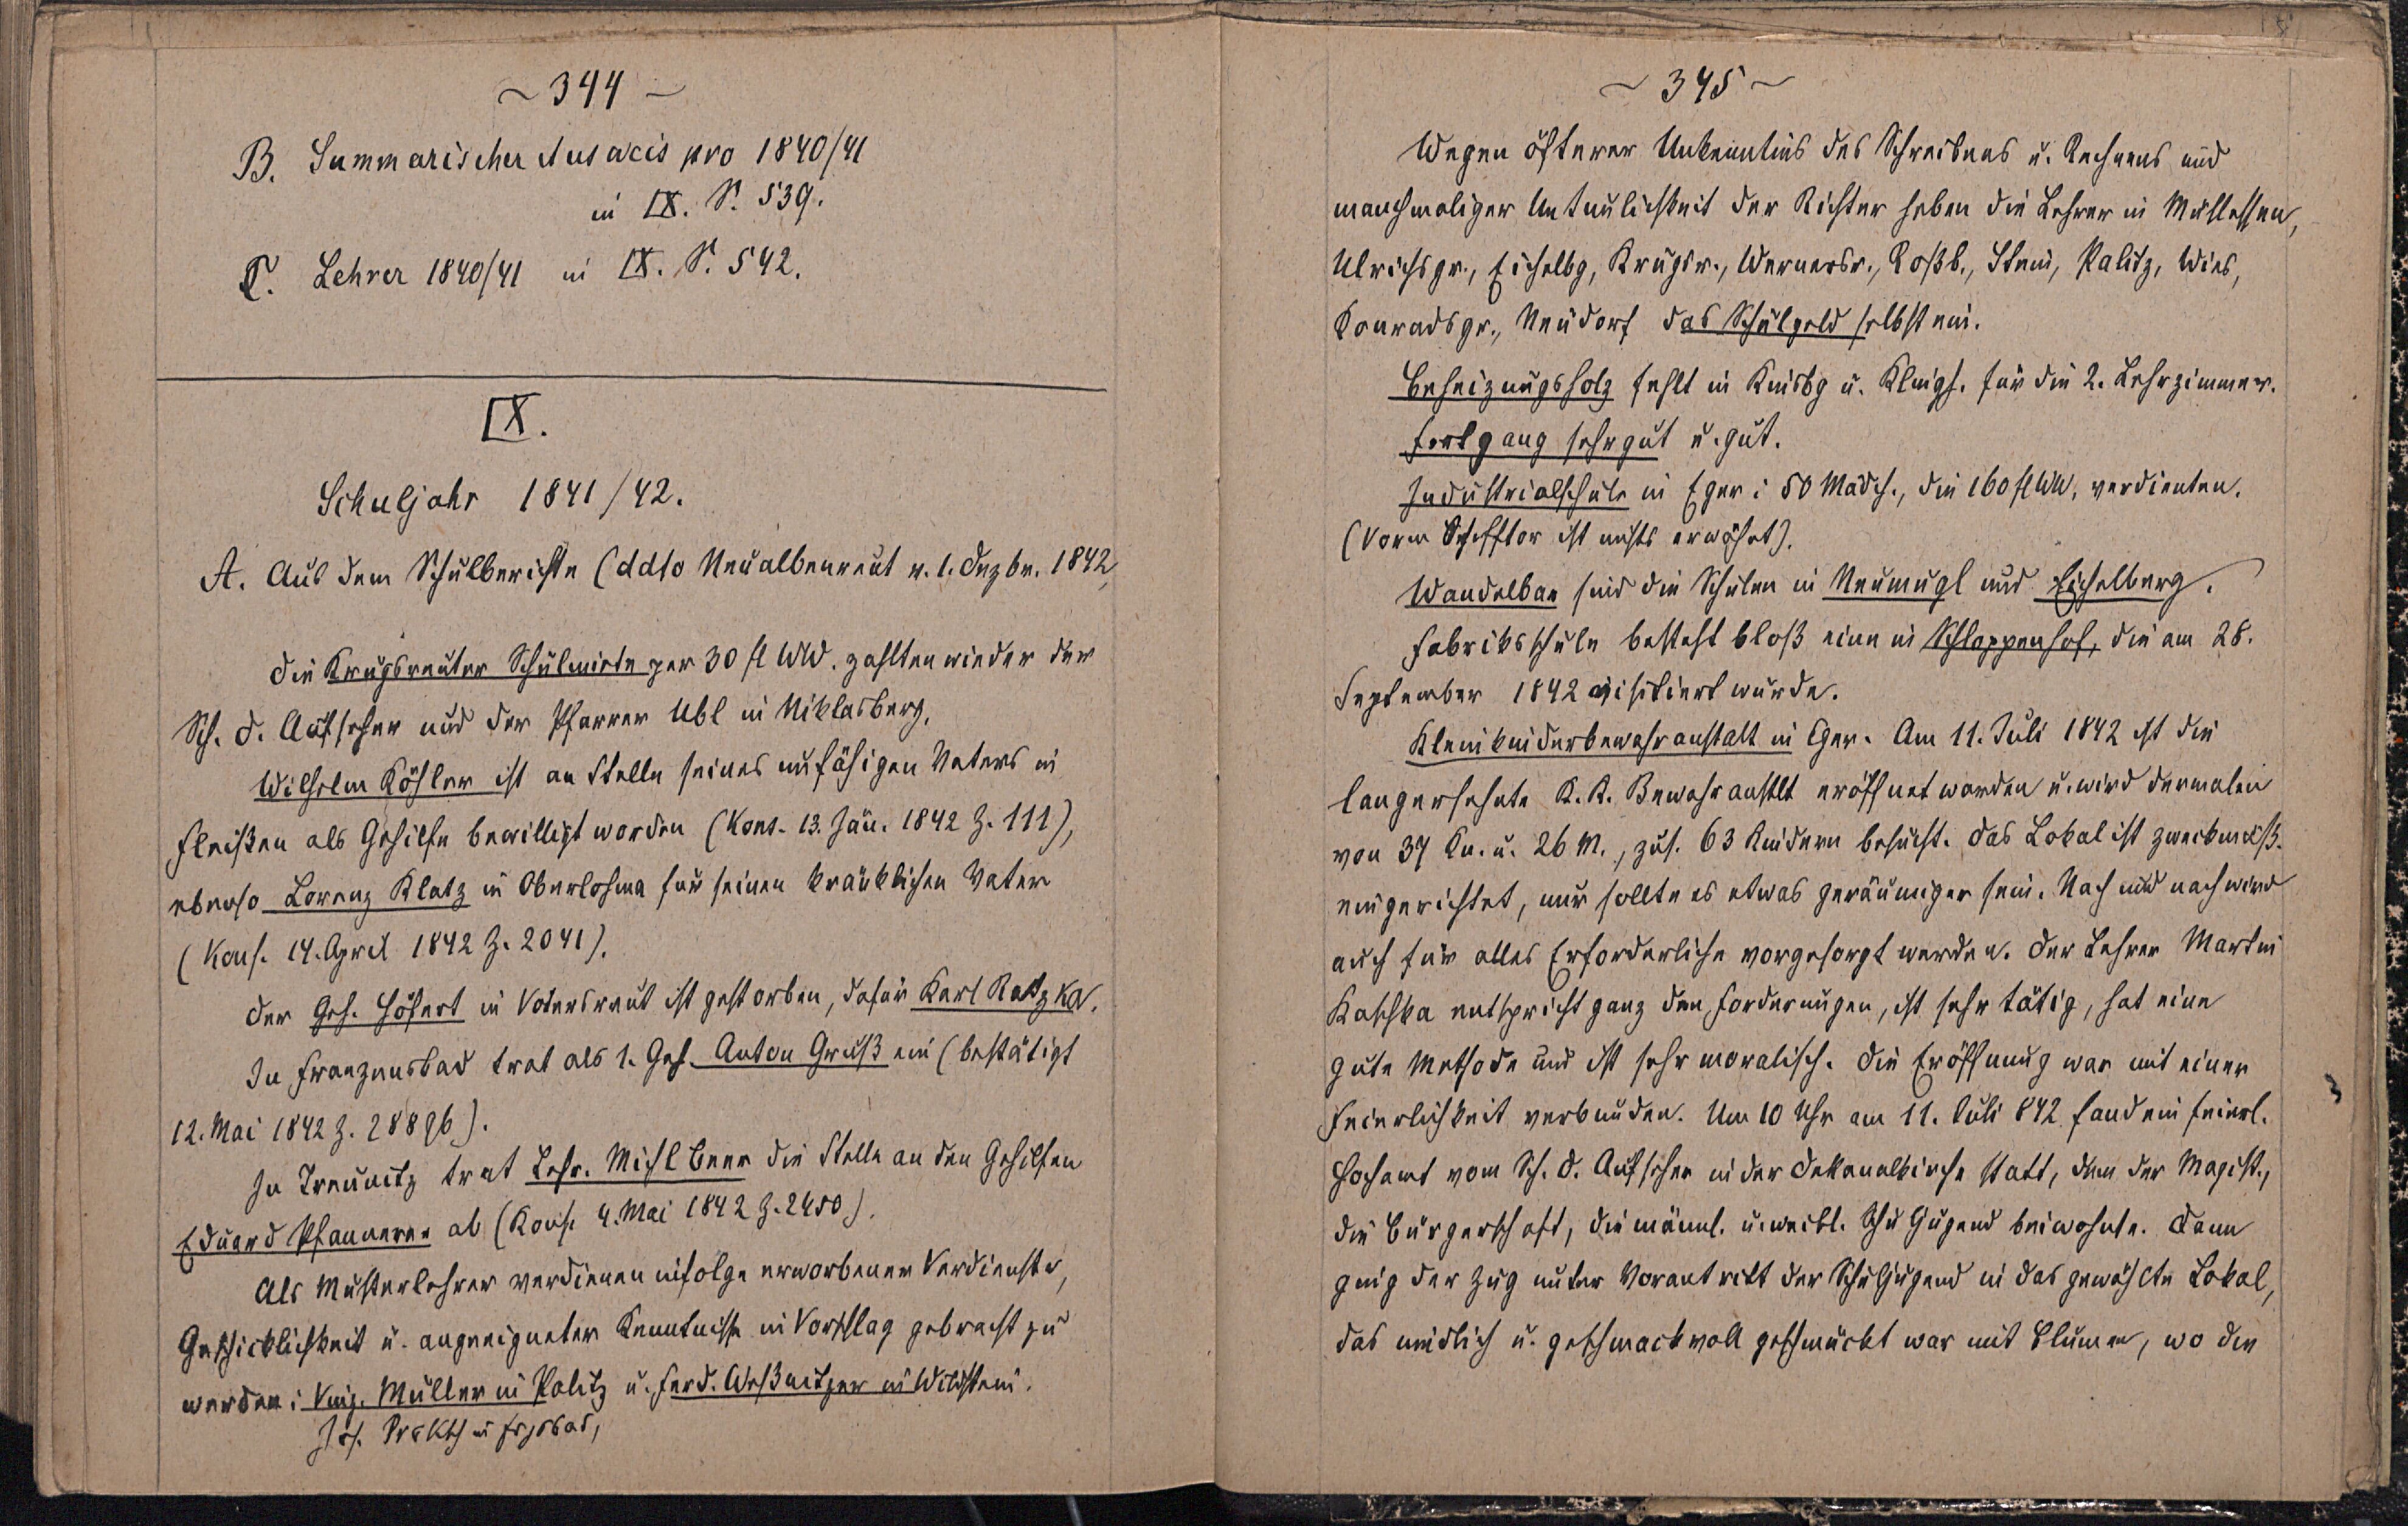 ~ 344 ~
B. Summarischer Ausweis pro 1840/41
in IX. S. 539.
C. Lehrer 1840/41 in IX. S. 542.
IX.
Schuljahr 1841/42.
A. Aus dem Schulberichte (ddto Neualbenreut v. 1. Dezbr. 1842,
Die Krugsreuter Schulmiete per 30 fl WW. zahlten wieder der
Sch. D. Aufseher und der Pfarrer Ubl in Niklasberg.
Wilhelm Köhler ist an Stelle seines unfähigen Vaters in
Fleißen als Gehilfe bewilligt worden (Kons. 13. Jän. 1842 Z. 111),
ebenso Lorenz Klatz in Oberlohma für seinen kränklichen Vater
(Kons. 14. April 1842 Z. 2041).
Der Geh. Höfert in Voitersreut ist gestorben, dafür Karl Ratzka.
In Franzensbad trat als 1. Geh. Anton Gruß ein (bestätigt
12. Mai 1842 Z. 28896).
In Treunitz trat Lehr. Michl Beer die Stelle an den Gehilfen
Eduard Pfannerer ab (Kons. 4. Mai 1842 Z. 2450).
Als Musterlehrer verdienen infolge erworbener Verdienste,
Geschicklichkeit u. angeeigneter Kenntnisse in Vorschlag gebracht zu
werden: Vinz. Müller in Palitz u. Ferd. Weßnitzer in Wildstein.
Jos. in Frzsbad,
~ 345 ~
Wegen öfterer Unkenntnis des Schreibens u. Rechnens und
manchmaliger Untunlichkeit der Richter heben die Lehrer in Mühlessen,
Ulrichsgr., Eichelbg, Krugsr., Wernersr., Roßb., Stein, Palitz, Wies,
Konradsgr., Neudorf das Schulgeld selbst ein.
Beheizungsholz fehlt in Kinsbg u. Klingh. für die 2. Lehrzimmer.
Fortgang sehr gut u. gut.
Industrialschule in Eger: 50 Mädch., die 160 fl WW. verdienten.
(Vorm Schifftor ist nichts erwähnt).
Wandelbar sind die Schulen in Neumugl und Eichelberg.
Fabriksschule besteht bloß eine in Schloppenhof, die am 28.
September 1842 visitiert wurde.
Kleinkinderbewahranstalt in Eger. Am 11. Juli 1842 ist die
langersehnte K. K. Bewahranstlt eröffnet worden u. wird dermalen
von 37 Kn. u. 26 M., zus. 63 Kindern besucht. Das Lokal ist zweckmäß.
eingerichtet, nur sollte es etwas geräumiger sein. Nach und nach wird
auch für alles Erforderliche vorgesorgt werden. Der Lehrer Martin
Kaschka entspricht ganz den Forderungen, ist sehr tätig, hat eine
gute Methode und ist sehr moralisch. Die Eröffnung war mit einer
Feierlichkeit verbunden. Um 10 Uhr am 11. Juli 842 fand ein feierl.
Hochamt vom Sch. D. Aufseher in der Dekanalkirche statt, dem der Magist.,
die Bürgerschaft, die männl. u. weibl. Schuljugend beiwohnte. Dann
ging der Zug unter Vorantritt der Schuljugend in das gewählte Lokal,
das niedlich u. geschmackvoll geschmückt war mit Blumen, wo die